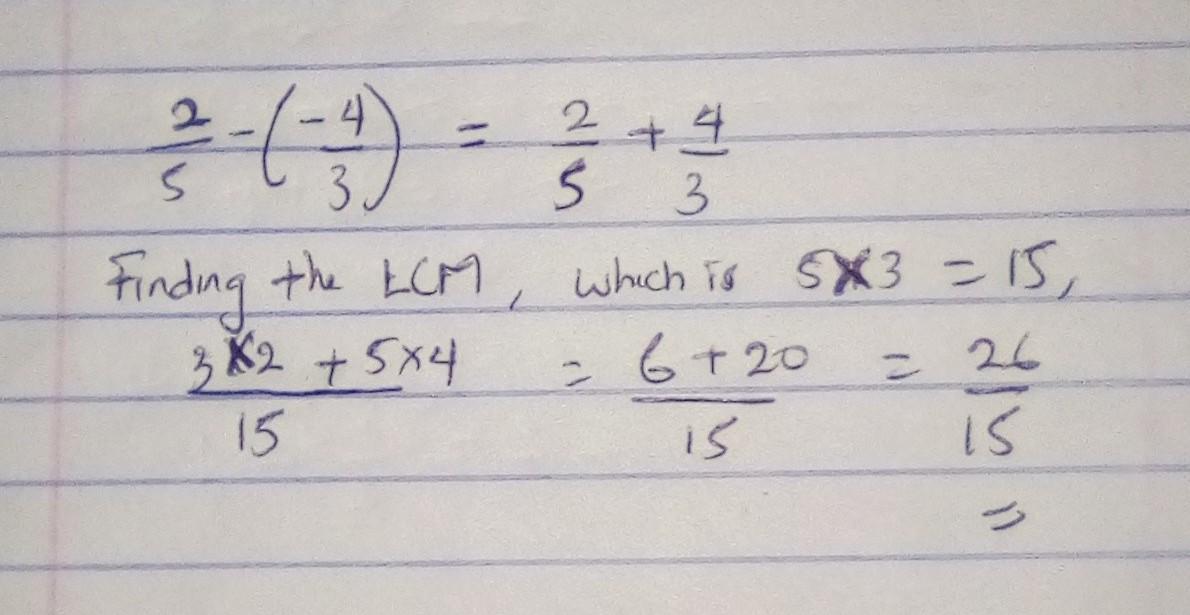 2/5 - (-4/3) = 2/5 + 4/3
Finding the LCM, which is 5×3 = 15,
(3×2 + 5×4)/15 = (6+20)/15 = 26/15
=